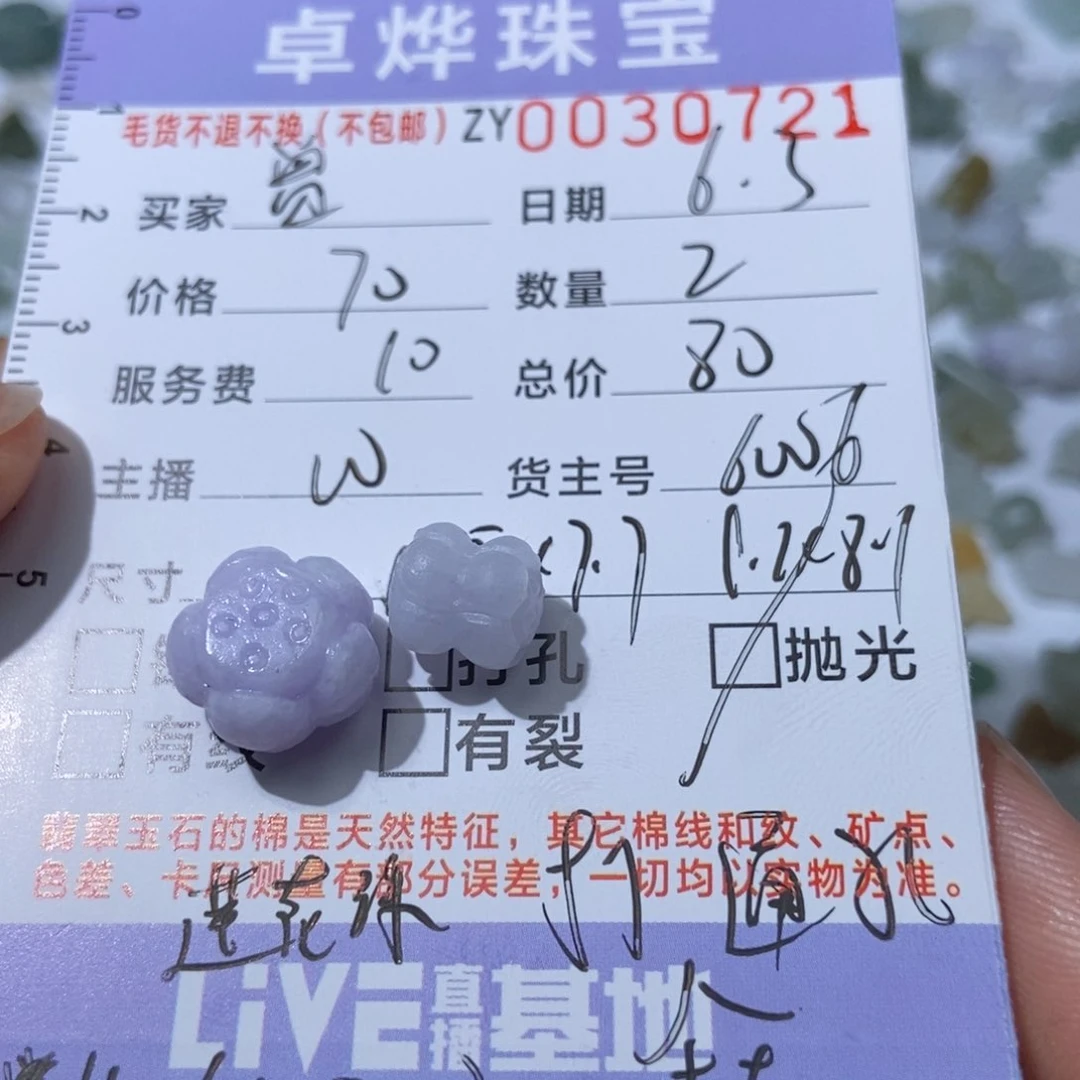 卓烨珠宝
毛货不退不换（不包邮）ZY0030721
买家 日期 6.5
价格 70 数量 2
服务费 10 总价 80
主播 W 货主号 6W6
尺寸 ×7.7 1.2×8.9
打孔 抛光
有裂 有裂
翡翠玉石的棉是天然特征，其它棉线和纹、矿点、
色差、卡尺测量有部分误差，一切均以实物为准。
莲花珠 打通孔
LiVE直播基地
0 1 2 3 4 5